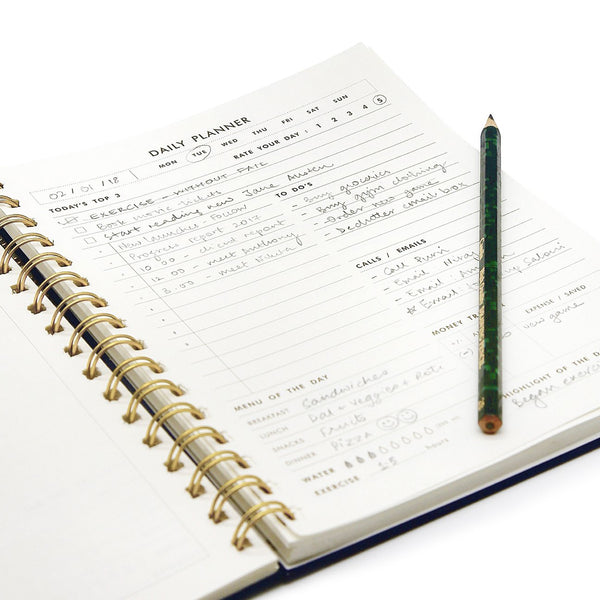 DAILY PLANNER
MON TUE WED THU FRI SAT SUN
02 / 01 / 18
RATE YOUR DAY : 1 2 3 4 5
TODAY'S TOP 3
EXERCISE - WITHOUT FAIL
Book movie tickets
Start reading new Jane Austen
New launches Follow
Progress report 2017
10.00 - client report
12.00 - meet Anthony
3.00 - meet
TO DO'S
- Buy groceries
- Buy gym clothing
- Order new game
- Declutter email box
CALLS / EMAILS
- Call
- Email
- Email
Email
MONEY
EXPENSE / SAVED
new game
MENU OF THE DAY
BREAKFAST Sandwiches
LUNCH Dal + veggies + Roti
SNACKS Fruits
DINNER Pizza
WATER
EXERCISE 2.5 hours
HIGHLIGHT OF THE
Began